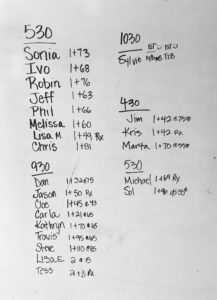 530
Sonia 1+73
Ivo 1+68
Robin 1+76
Jeff 1+63
Phil 1+66
Melissa 1+60
Lisa M 1+99 Rx
Chris 1+81
930
Dan 1+32@75
Jason 1+50 Rx
Cloe 1+45@43
Carla 1+21@65
Kathryn 1+70@65
Travis 1+95@65
Steve 1+110@85
Lisa E. 2@15
Tess 2+3 Rx
1030
Sylvie
FEB
430
Jim 1+42@75#
Kris 1+42 Rx
Marta 1+70@55#
530
Michael 1+69 Rx
Sol 1+90@535#